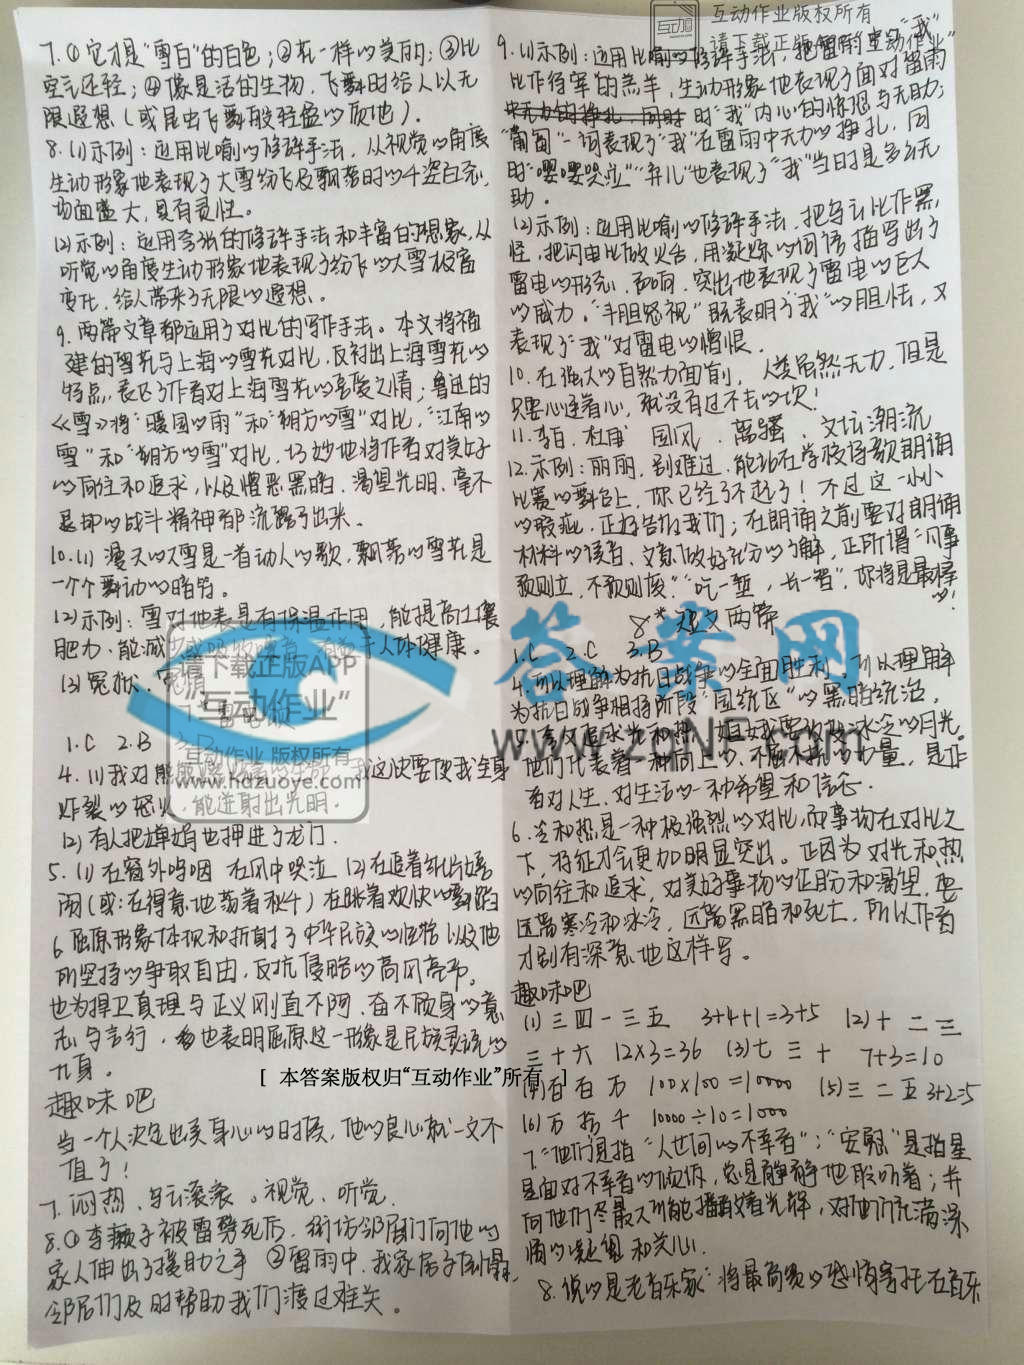 7.①它才是“雪白”的白色;②花一样的美丽;③比
空气还轻;④像是活的生物,飞翔时给人以无
限遐想(或昆虫飞舞般轻盈的质地).
8.(1)示例:运用比喻的修辞手法,从视觉的角度
生动形象地表现了大雪纷飞及飘落时的千姿百态,
场面盛大,具有灵性。
(2)示例:运用夸张的修辞手法和丰富的想象,从
听觉的角度生动形象地表现了纷飞的大雪极富
变化,给人带来了无限的遐想。
9.两篇文章都运用了对比的写作手法。本文将福
建的雪花与上海的雪花对比,反衬出上海雪花的
特点,表达了作者对上海雪花的喜爱之情;鲁迅的
《雪》将“暖国的雨”和“朔方的雪”对比,“江南的
雪”和“朔方的雪”对比,巧妙地将作者对美好
的向往和追求,以及憎恶黑暗、渴望光明、毫不
妥协的战斗精神都流露了出来。
10.(1)漫天的大雪是一首动人的歌,飘落的雪花是
一个个舞动的音符。
(2)示例:雪对地表是有保温作用,能提高土壤
肥力,能减 人体健康。
(3)冤枉、
1.C 2.B 3.B
4.(1)我对 我这次要使我全身
炸裂的怒火 能迸射出光明.
(2)有人把婵娟也押进了龙门.
5.(1)在窗外呜咽 在风中哭泣 (2)在追着纸片嬉
闹(或:在得意地荡着秋千) 在跳着欢快的舞蹈
6.屈原形象体现和折射了中华民族的 以及他
所坚持的争取自由,反抗侵略的高风亮节。
也为捍卫真理与正义刚直不阿、奋不顾身的意
志与言行,也表明屈原这一形象是民族灵魂的
化身。
趣味吧
当一个人决定出卖身心的时候,他的良心就一文不
值了!
7.闷热、乌云滚滚。视觉、听觉.
8.①李癞子被雷劈死后,街坊邻居们向他的
家人伸出了援助之手 ②雷雨中,我家房子倒塌,
邻居们及时帮助我们渡过难关。
9.(1)示例:运用比喻的修辞手法,把雷雨里的“我”
比作待宰的羔羊,生动形象地表现了面对雷雨
时“我”内心的惶恐与无助;
“匍匐”一词表现了“我”在雷雨中无力的挣扎,同
时“嘤嘤哭泣”“弃儿”也表现了“我”当时是多么无
助。
(2)示例:运用比喻的修辞手法,把乌云比作黑
怪,把闪电比做火舌,用凝炼的词语描写出了
雷电的形态、声响,突出地表现了雷电的巨大
的威力。“斗胆怒视”既表明了“我”的胆怯,又
表现了“我”对雷电的憎恨.
10.在强大的自然力面前,人类虽然无力,但是
只要心连着心,就没有过不去的坎!
11.李白、杜甫 国风、离骚、文坛潮流
12.示例:丽丽,别难过,能站在学校诗歌朗诵
比赛的舞台上,你已经了不起了!不过这一小小
的瑕疵,正好告诉我们:在朗诵之前要对朗诵
材料的读音、文意做好充分的了解,正所谓“凡事
预则立,不预则废”“吃一堑,长一智”.你将是最棒
的!
8*短文两篇
1.C 2.C 3.B
4.可以理解为抗日战争的全面胜利,可以理解
为抗日战争相持阶段“国统区”的黑暗统治。
5. 追求光和热,姐妹要 冰冷的月光.
他们代表着一种向上的、不屈不挠的力量,是作
者对人生、对生活的一种希望和信念.
6.冷和热是一种极强烈的对比,而事物在对比之
下,特征才会更加明显突出。正因为对光和热
的向往和追求,对美好事物的企盼和渴望,要
远离寒冷和冰冷,远离黑暗和死亡,所以作者
才别有深意地这样写。
趣味吧
(1)三 四 一 三 五 3+4+1=3+5 (2)十 二 三
三十六 12×3=36 (3)七 三 十 7+3=10
(4)百 百 万 100×100=10000 (5)三 二 五 3+2=5
(6)万 拾 千 10000÷10=1000
7.“他们”是指“人世间的不幸者”;“安慰”是指星
星面对不幸者的倾诉,总是静静地聆听着;并
向他们尽最大可能播散着光辉,对他们充满深
情的凝望和关心.
8.说的是老音乐家“将最高贵的感情寄托在音乐
互动作业版权所有
请下载正版互动作业
请下载正版APP
“互动作业”
互动作业 版权所有
www.hdzuoye.com
答案网
www.zqnf.com
[ 本答案版权归“互动作业”所有 ]